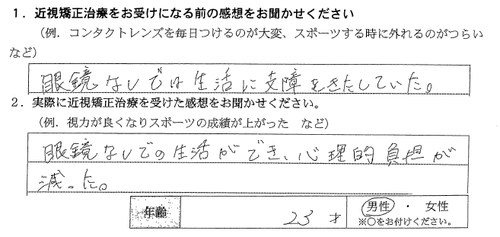 1．近視矯正治療をお受けになる前の感想をお聞かせください
（例．コンタクトレンズを毎日つけるのが大変、スポーツする時に外れるのがつらい
など）
眼鏡なしでは生活に支障をきたしていた。
2．実際に近視矯正治療を受けた感想をお聞かせください。
（例．視力が良くなりスポーツの成績が上がった　など）
眼鏡なしでの生活ができ、心理的負担が
減った。
年齢　23才　男性・女性
※○をお付けください。